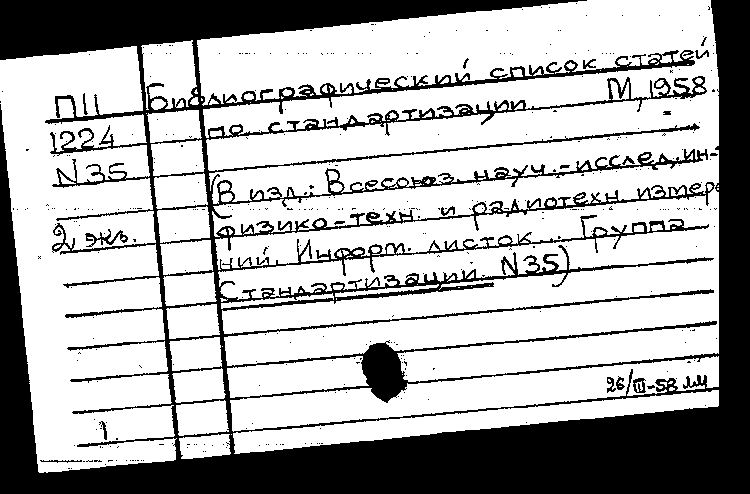 П11 Библиографический список статей
1224 по стандартизации. М, 1958.
N35 (В изд.: Всесоюз. науч.-исслед. ин-
2 экз. физико-техн. и радиотехн. измере
ний. Информ. листок... Группа
Стандартизации N35)
26/III-58 ММ
1